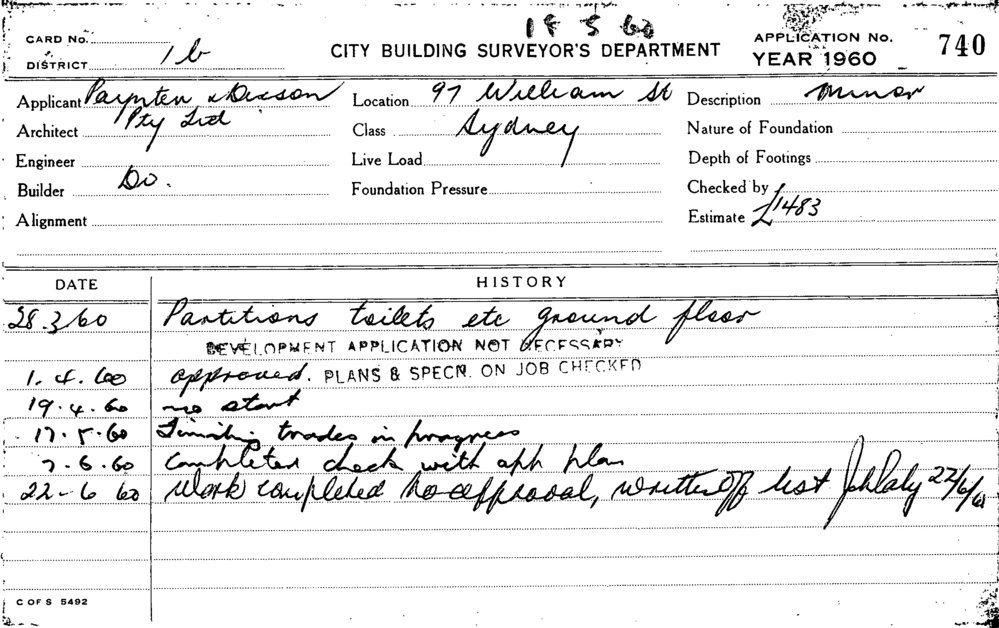 18 5 60
CARD No.
DISTRICT 1b
CITY BUILDING SURVEYOR'S DEPARTMENT
APPLICATION No. 740
YEAR 1960
Applicant Paynter & Dixson Pty Ltd
Location 97 William St Sydney
Description minor
Architect
Class
Nature of Foundation
Engineer
Live Load
Depth of Footings
Builder Do.
Foundation Pressure
Checked by
Alignment
Estimate £1483
DATE HISTORY
28.3.60 Partitions toilets etc ground floor
DEVELOPMENT APPLICATION NOT NECESSARY
1.4.60 approved. PLANS & SPECN. ON JOB CHECKED
19.4.60 no start
17.5.60 Finishing trades in progress
7.6.60 Completed check with app plan
22-6 60 Work completed to approval, written off list 22/6/60
C OF S 5492